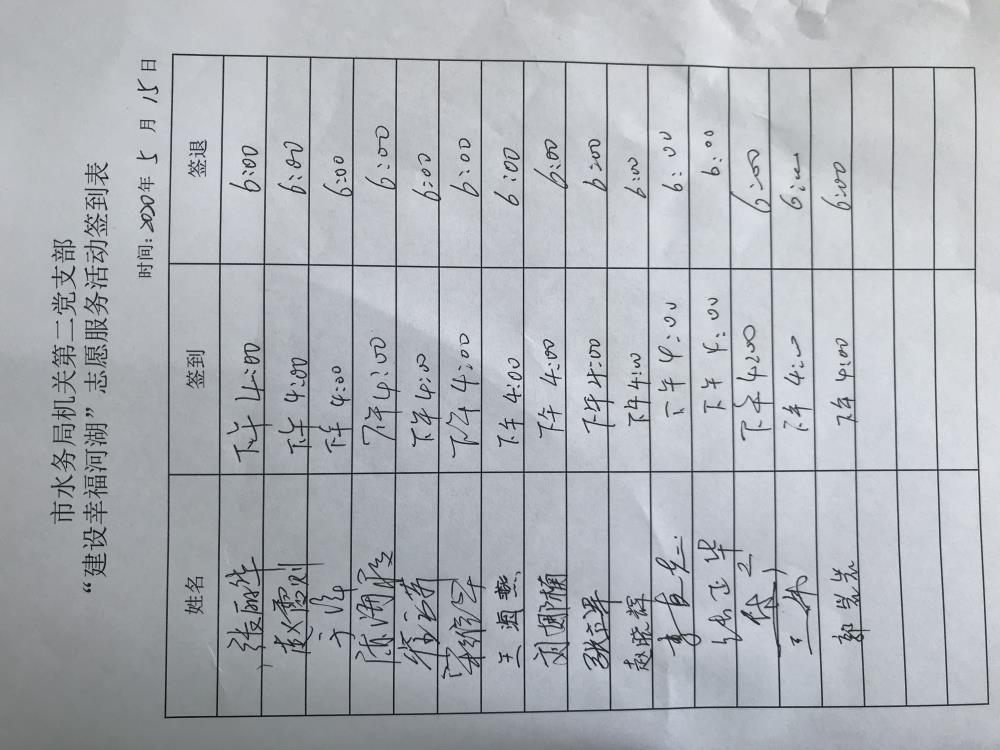 市水务局机关第二党支部
“建设幸福河湖”志愿服务活动签到表
时间：2020年 5 月 15 日
姓名 签到 签退
张丽华 下午 4:00 6:00
赵儒则 下午 4:00 6:00
下午 4:00 6:00
陈海民 下午 4:00 6:00
下午 4:00 6:00
宋维华 下午 4:00 6:00
王海燕 下午 4:00 6:00
刘娜楠 下午 4:00 6:00
张立军 下午 4:00 6:00
赵晓辉 下午 4:00 6:00
下午 4:00 6:00
下午 4:00 6:00
下午 4:00 6:00
下午 4:00 6:00
郭岩岩 下午 4:00 6:00